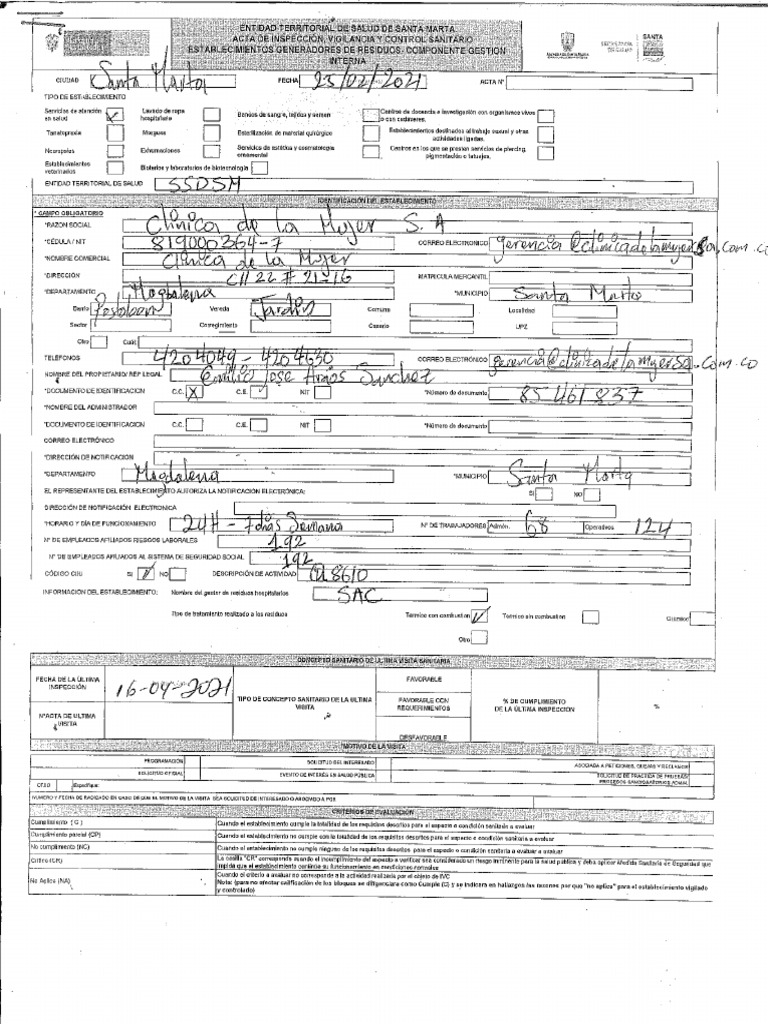 ENTIDAD TERRITORIAL DE SALUD DE SANTA MARTA
ACTA DE INSPECCIÓN, VIGILANCIA Y CONTROL SANITARIO
ESTABLECIMIENTOS GENERADORES DE RESIDUOS: COMPONENTE GESTION
INTERNA
SANTA
CIUDAD Santa Marta FECHA 23/02/2021 ACTA N°
TIPO DE ESTABLECIMIENTO
Servicios de atención en salud Lavado de ropa hospitalaria Bancos de sangre, tejidos y semen Centros de docencia e investigación con organismos vivos o con cadáveres.
Tanatopraxia Morgues Esterilización de material quirúrgico Establecimientos destinados al trabajo sexual y otras actividades ligadas.
Necropsias Exhumaciones Servicios de estética y cosmetología ornamental Centros en los que se presten servicios de piercing, pigmentación o tatuajes.
Establecimientos veterinarios Bioterios y laboratorios de biotecnología
ENTIDAD TERRITORIAL DE SALUD SSDSM
IDENTIFICACIÓN DEL ESTABLECIMIENTO
* CAMPO OBLIGATORIO
*RAZON SOCIAL Clinica de la Mujer S. A
*CÉDULA / NIT 819000364-7 CORREO ELECTRONICO gerencia@clinicadelamujersa.com.co
*NOMBRE COMERCIAL Clinica de la Mujer
*DIRECCIÓN Cll 22 # 21-16 MATRICULA MERCANTIL
*DEPARTAMENTO Magdalena *MUNICIPIO Santa Marta
Barrio Vereda Jardin Comuna Localidad
Sector Corregimiento Caserío UPZ
Otro Cuál:
TELÉFONOS 4204049 - 4204630 CORREO ELECTRÓNICO gerencia@clinicadelamujersa.com.co
NOMBRE DEL PROPIETARIO/ REP LEGAL Emilio Jose Arajos Sanchez
*DOCUMENTO DE IDENTIFICACION C.C. X C.E. NIT *Número de documento 85461837
*NOMBRE DEL ADMINISTRADOR
*DOCUMENTO DE IDENTIFICACION C.C. C.E. NIT *Número de documento
CORREO ELECTRÓNICO
*DIRECCIÓN DE NOTIFICACION
*DEPARTAMENTO Magdalena *MUNICIPIO Santa Marta
EL REPRESENTANTE DEL ESTABLECIMIENTO AUTORIZA LA NOTIFICACIÓN ELECTRÓNICA: SI NO
DIRECCIÓN DE NOTIFICACIÓN ELECTRONICA
*HORARIO Y DÍA DE FUNCIONAMIENTO 24H - 7 dias Semana N° DE TRABAJADORES Admón. 68 Operativos 124
N° DE EMPLEADOS AFILIADOS RIESGOS LABORALES 192
N° DE EMPLEADOS AFILIADOS AL SISTEMA DE SEGURIDAD SOCIAL 192
CÓDIGO CIIU SI NO DESCRIPCIÓN DE ACTIVIDAD 8610
INFORMACIÓN DEL ESTABLECIMIENTO: Nombre del gestor de residuos hospitalarios SAC
Tipo de tratamiento realizado a los residuos Termico con combustion Termico sin combustion Quimico
Otro
CONCEPTO SANITARIO DE ULTIMA VISITA SANITARIA
FECHA DE LA ÚLTIMA INSPECCIÓN 16-04-2021 TIPO DE CONCEPTO SANITARIO DE LA ULTIMA VISITA FAVORABLE % DE CUMPLIMIENTO DE LA ÚLTIMA INSPECCION %
FAVORABLE CON REQUERIMIENTOS
N°ACTA DE ULTIMA VISITA DESFAVORABLE
MOTIVO DE LA VISITA
PROGRAMACIÓN SOLICITUD DEL INTERESADO ASOCIADA A PETICIONES, QUEJAS Y RECLAMOS
SOLICITUD OFICIAL EVENTO DE INTERÉS EN SALUD PÚBLICA SOLICITUD DE PRACTICA DE PRUEBAS/ PROCESOS SANCIONATORIOS ADMIN.
OTRO Especifique:
NUMERO Y FECHA DE RADICADO EN CASO DE QUE EL MOTIVO DE LA VISITA SEA SOLICITUD DE INTERESADO O ASOCIADO A PQR
CRITERIOS DE EVALUACION
Cumplimiento ( C ) Cuando el establecimiento cumple la totalidad de los requisitos descritos para el aspecto o condición sanitaria a evaluar
Cumplimiento parcial (CP) Cuando el establecimiento no cumple con la totalidad de los requisitos descritos para el aspecto o condición sanitaria a evaluar
No cumplimiento (NC) Cuando el establecimiento no cumple ninguno de los requisitos descritos para el aspecto o condición sanitaria a evaluar
Critico (CR) La casilla "CR" corresponde cuando el incumplimiento del aspecto a verificar sea considerado un riesgo inminente para la salud publica y deba aplicar Medida Sanitaria de Seguridad que impida que el establecimiento continúe su funcionamiento en condiciones normales
No Aplica (NA) Cuando el criterio a evaluar no corresponde a la actividad realizada por el objeto de IVC
Nota: (para no afectar calificación de los bloques se diligenciara como Cumple (C) y se indicara en hallazgos las razones por que "no aplica" para el establecimiento vigilado y controlado)